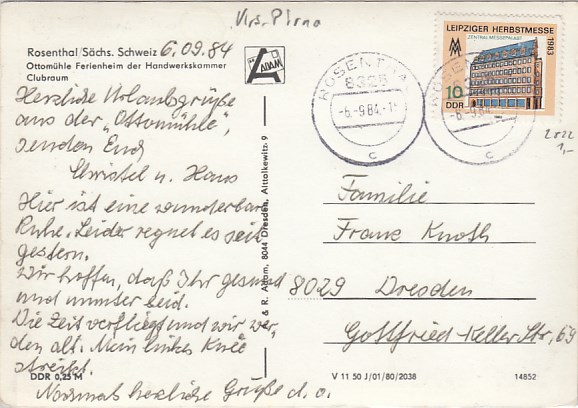 Krs. Pirna
Rosenthal/Sächs. Schweiz 6.09.84
Ottomühle Ferienheim der Handwerkskammer
Clubraum
ADAM
Herzliche Urlaubsgrüße
aus der „Ottomühle“,
senden Euch
Christel u. Hans
Hier ist eine wunderbare
Ruhe. Leider regnet es seit
gestern.
Wir hoffen, daß Ihr gesund
und munter seid.
Die Zeit verfliegt und wir wer-
den alt. Mein linkes Knie
streikt.
Nochmals herzliche Grüße d. o.
DDR 0,25 M
A. & R. Adam, 8044 Dresden, Alttolkewitz 9
LEIPZIGER HERBSTMESSE
1983
ZENTRAL-MESSEPALAST
10
DDR
ROSENTHAL
8325
-6.-9.84.-1
c
-6.-9.84
c
2822
1,-
Familie
Franz Knoth
8029 Dresden
Gottfried-Keller-Str, 69
V 11 50 J/01/80/2038
14852